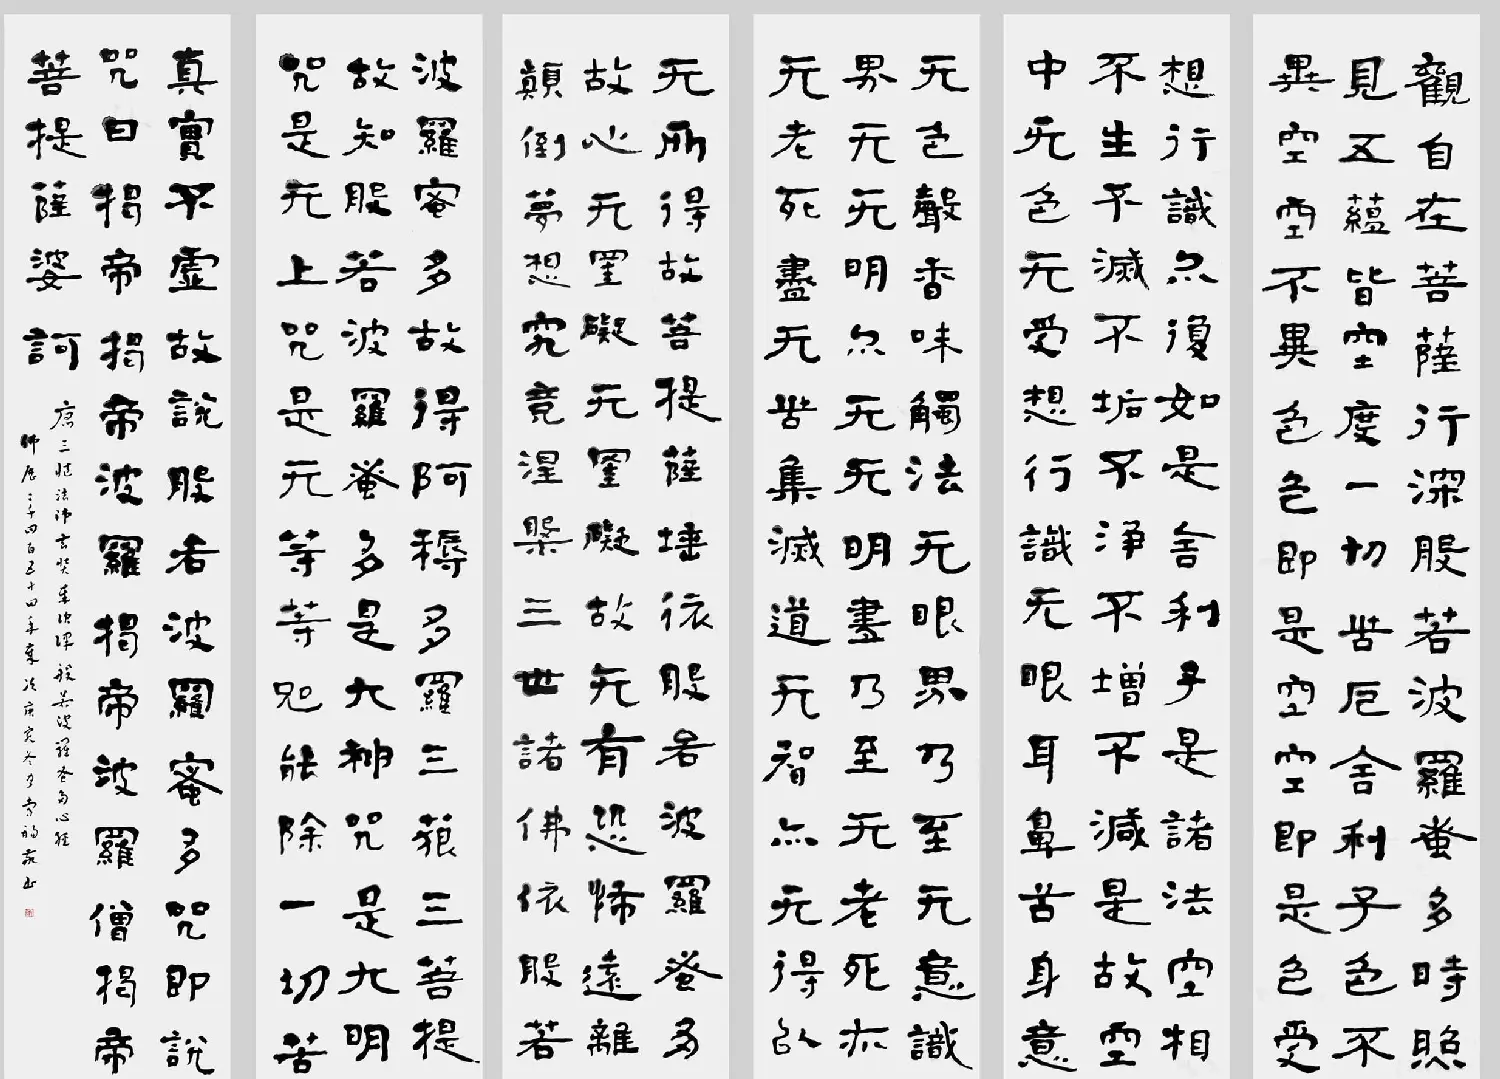 觀自在菩薩行深般若波羅蜜多時照
見五蘊皆空度一切苦厄舍利子色不
異空空不異色色即是空空即是色受
想行識亦復如是舍利子是諸法空相
不生不滅不垢不淨不增不減是故空
中无色无受想行識无眼耳鼻舌身意
无色聲香味觸法无眼界乃至无意識
界无无明亦无无明盡乃至无老死亦
无老死盡无苦集滅道无智亦无得以
无所得故菩提薩埵依般若波羅蜜多
故心无罣礙无罣礙故无有恐怖遠離
顛倒夢想究竟涅槃三世諸佛依般若
波羅蜜多故得阿耨多羅三藐三菩提
故知般若波羅蜜多是大神咒是大明
咒是无上咒是无等等咒能除一切苦
真實不虛故說般若波羅蜜多咒即說
咒曰揭帝揭帝波羅揭帝波羅僧揭帝
菩提薩婆訶
唐三藏法師玄奘奉詔譯般若波羅蜜多心經
四百五十四年歲次庚寅冬月